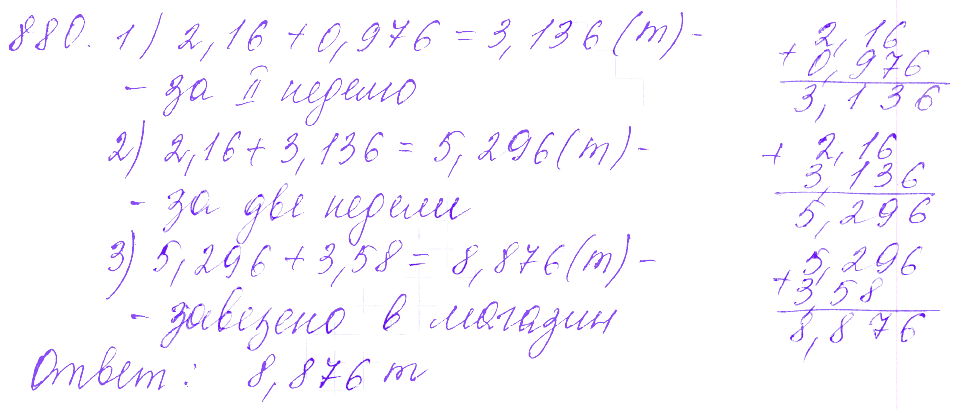 880. 1) 2,16 + 0,976 = 3,136 (т) -
- за II неделю
2) 2,16 + 3,136 = 5,296 (т) -
- за две недели
3) 5,296 + 3,58 = 8,876 (т) -
- завезено в магазин
Ответ: 8,876 т
+ 2,16
0,976
3,136
+ 2,16
3,136
5,296
5,296
+ 3,58
8,876